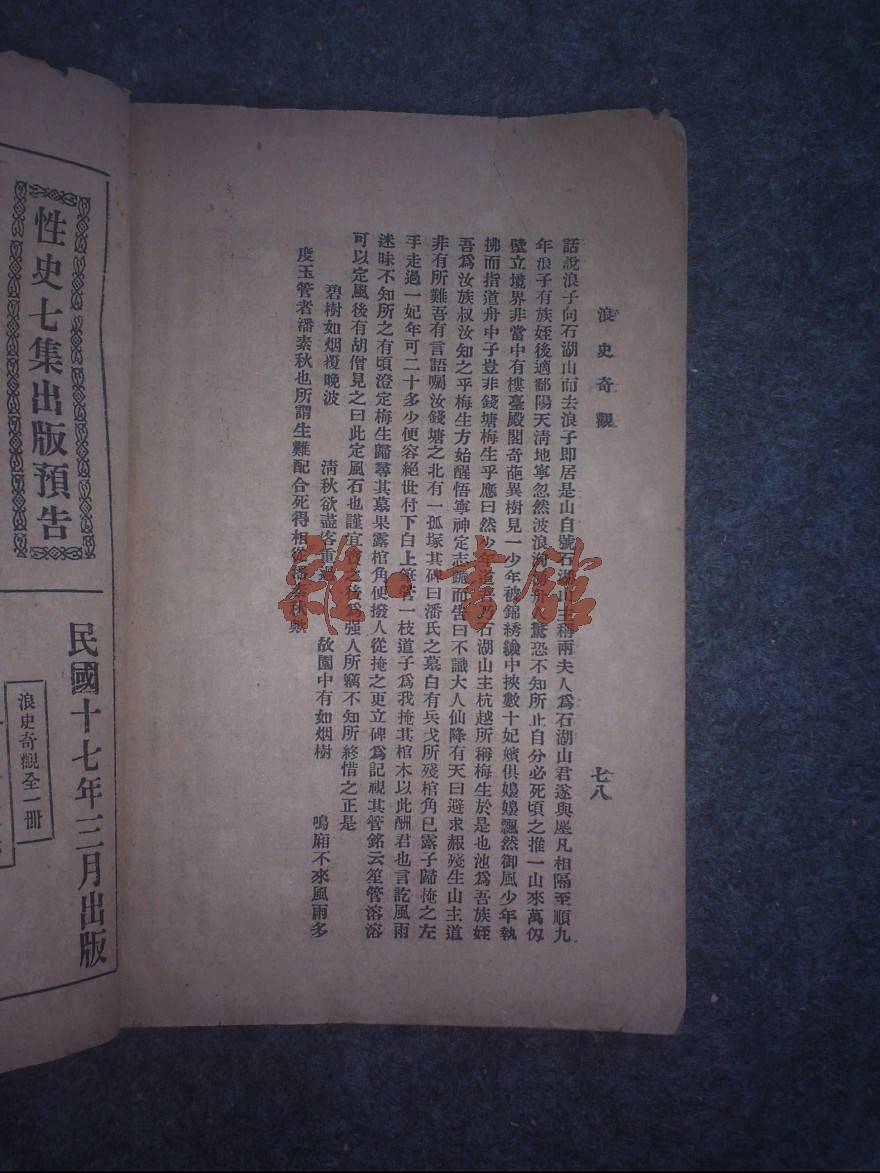 浪史奇觀
七八
話說浪子向石湖山而去浪子即居是山自號石湖山主稱兩夫人爲石湖山君遂與塵凡相隔至順九
年浪子有族姪後適鄱陽天清地寧忽然波浪洶湧舟人驚恐不知所止自分必死頃之推一山來萬仭
壁立境界非當中有樓臺殿閣奇葩異樹見一少年被錦綉纔中挾數十妃嬪俱嫂嫂飄然御風少年執
拂而指道舟中子豈非錢塘梅生乎應曰然少年道君乃石湖山主杭越所稱梅生於是也池爲吾族姪
吾爲汝族叔汝知之乎梅生方始醒悟寧神定志跪而告曰不識大人仙降有天曰避求赧殘生山主道
非有所難吾有言語囑汝錢塘之北有一孤塚其碑曰潘氏之墓白有兵戈所殘棺角已露子歸掩之左
手走過一妃年可二十多少便容絕世付下白上笙管一枝道子爲我掩其棺木以此酬君也言訖風雨
迷昧不知所之有頃澄定梅生歸尋其墓果露棺角便撥人從掩之更立碑爲記視其管銘云笙管溶溶
可以定風後有胡僧見之曰此定風石也謹宜之後爲强人所竊不知所終惜之正是
碧樹如烟覆晚波 清秋欲盡客重過 故園中有如烟樹 鳴廂不來風雨多
度玉管者潘素秋也所謂生難配合死得相從潘素秋歟
性史七集出版預告
民國十七年三月出版
浪史奇觀全一册
雜·書館